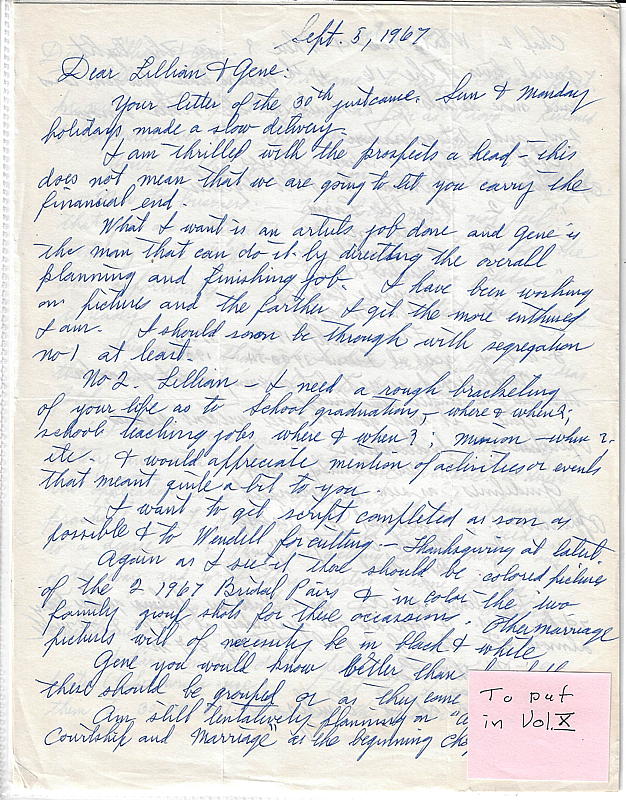 Sept. 5, 1967
Dear Lillian & Gene:
Your letter of the 30th just came. Sun & Monday
holidays made a slow delivery.
I am thrilled with the prospects a head - this
does not mean that we are going to let you carry the
financial end.
What I want is an artists job done and Gene is
the man that can do it by directing the overall
planning and finishing job. I have been working
on pictures and the farther I get the more enthused
I am. I should soon be through with segregation
no 1 at least.
No 2. Lillian - I need a rough bracketing
of your life as to School graduations, - where & when?;
school teaching jobs where & when?; mission - when?
etc. I would appreciate mention of activities or events
that meant quite a bit to you.
I want to get script completed as soon as
possible & to Wendell for cutting - Thanksgiving at latest.
Again as I see it there should be colored picture
of the 2 1967 Bridal Pairs & in color the two
family group shots for these occasions. Other marriage
pictures will of necessity be in black & white
Gene you would know better than
these should be grouped or as they came
Am still tentatively planning on
Courtship and Marriage" as the beginning
To put
in Vol. X